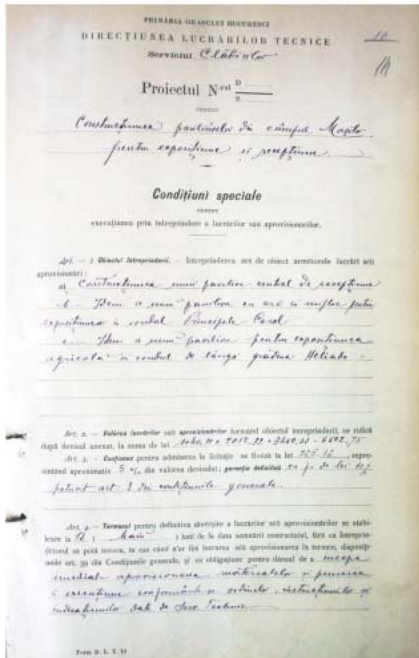 PRIMĂRIA ORAȘULUI BUCURESCI
DIRECȚIUNEA LUCRĂRILOR TECNICE
Serviciul Clădirilor
Proiectul N-rul D
B
PENTRU
Construcțiunea pavilioanelor din câmpul Moșilor
pentru expozițiune și recepțiune.
Condițiuni speciale
PENTRU
execuțiunea prin întreprindere a lucrărilor sau aprovisionărilor.
Art. 1 Obiectul întreprinderii. - Întreprinderea are de obiect următorele lucrări seŭ
aprovisionări:
a) Construcțiunea unui pavilion central de recepțiune
b - Idem a unui pavilion cu
expozițiunea în rondul Principele Carol
c - Idem a unui pavilion pentru expozițiunea
agricolă în rondul de lângă grădina Heliade.
Art. 2. - Valórea lucrărilor seŭ aprovisionărilor formând obiectul întreprinderii, se ridică
după devisul anexat, la suma de lei
Art. 3. - Cauțiunea pentru admiterea la licitație se fixază la lei repre-
sintând aproximativ 5 % din valórea devisului; garanția definitivă va fi de lei 10 %
art. 8 din condițiunile generale.
Art. 4. - Termenul pentru definitiva săvêrșire a lucrărilor seŭ aprovisionărilor se stabi-
lesce la 12 (Maiŭ) luni de la data semnării contractului, fără ca întreprin-
dětorul să pótă invoca, în cas când n'ar fini lucrarea seŭ aprovisionarea în termen, disposiț-
iunile art. 39 din Condițiunile generale, și cu obligațiune pentru dênsul de a începe
imediat aprovisionarea materialelor și punerea
în execuțiune conformându-se ordinelor, instrucțiunilor și
indicațiunilor date de Serv. Technic
Form. D. L. T. 13